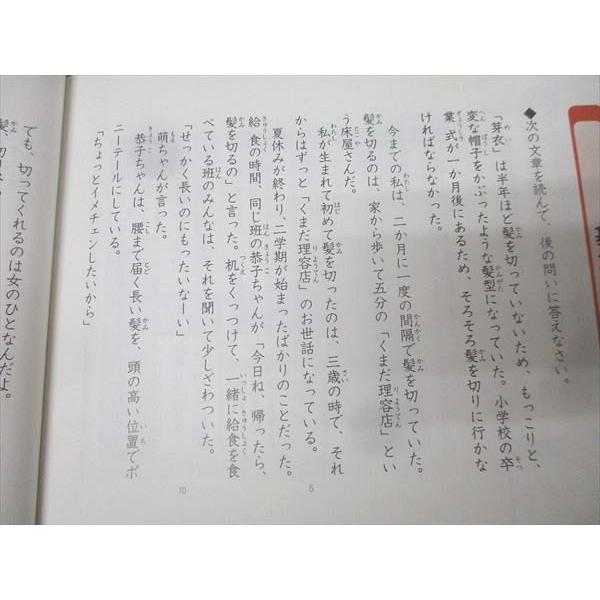 ◆次の文章を読んで、後の問いに答えなさい。
「芽衣」は半年ほど髪を切っていないため、もっこりと、
変な帽子をかぶったような髪型になっていた。小学校の卒
業式が一か月後にあるため、そろそろ髪を切りに行かな
ければならなかった。
今までの私は、二か月に一度の間隔で髪を切っていた。
髪を切るのは、家から歩いて五分の「くまだ理容店」とい
う床屋さんだ。
私が生まれて初めて髪を切ったのは、三歳の時で、それ
からはずっと「くまだ理容店」のお世話になっている。
夏休みが終わり、二学期が始まったばかりのことだった。
給食の時間、同じ班の恭子ちゃんが「今日ね、帰ったら、
髪を切るの」と言った。机をくっつけて、一緒に給食を食
べている班のみんなは、それを聞いて少しざわついた。
「せっかく長いのにもったいなーい」
萌ちゃんが言った。
恭子ちゃんは、腰まで届く長い髪を、頭の高い位置でポ
ニーテールにしている。
「ちょっとイメチェンしたいから」
5
10
でも、切ってくれるのは女のひとなんだよ。